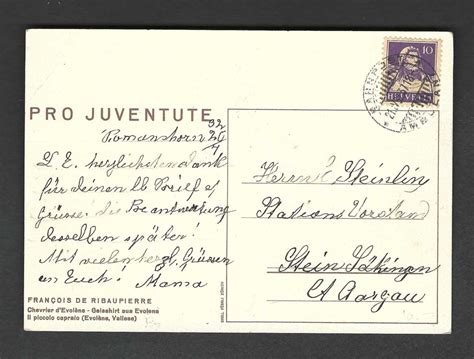 10
HELVETIA
PRO JUVENTUTE
Romanshorn 20/7 32
L. E. herzlichsten dank
für deinen lb Brief &
Grüsse. die Beantwortung
desselben später!
Mit vielen herzl. Grüssen
an Euch! Mama
Herrn Steinlin
Stations Vorstand
Stein Säkingen
Ct Aargau
FRANÇOIS DE RIBAUPIERRE
Chevrier d'Evolène - Geisshirt aus Evolena
Il piccolo capraio (Evolène, Vallese)